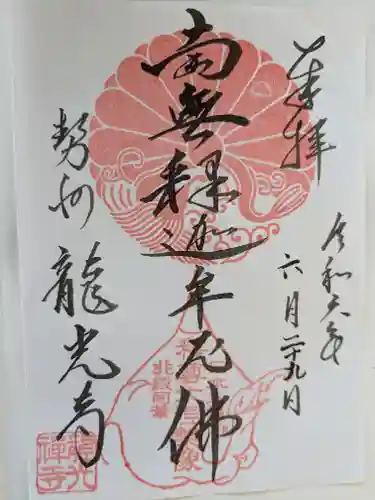 奉拝
令和六年
六月二十九日
南無釈迦牟尼佛
勢州
龍光寺
龍光
禅寺